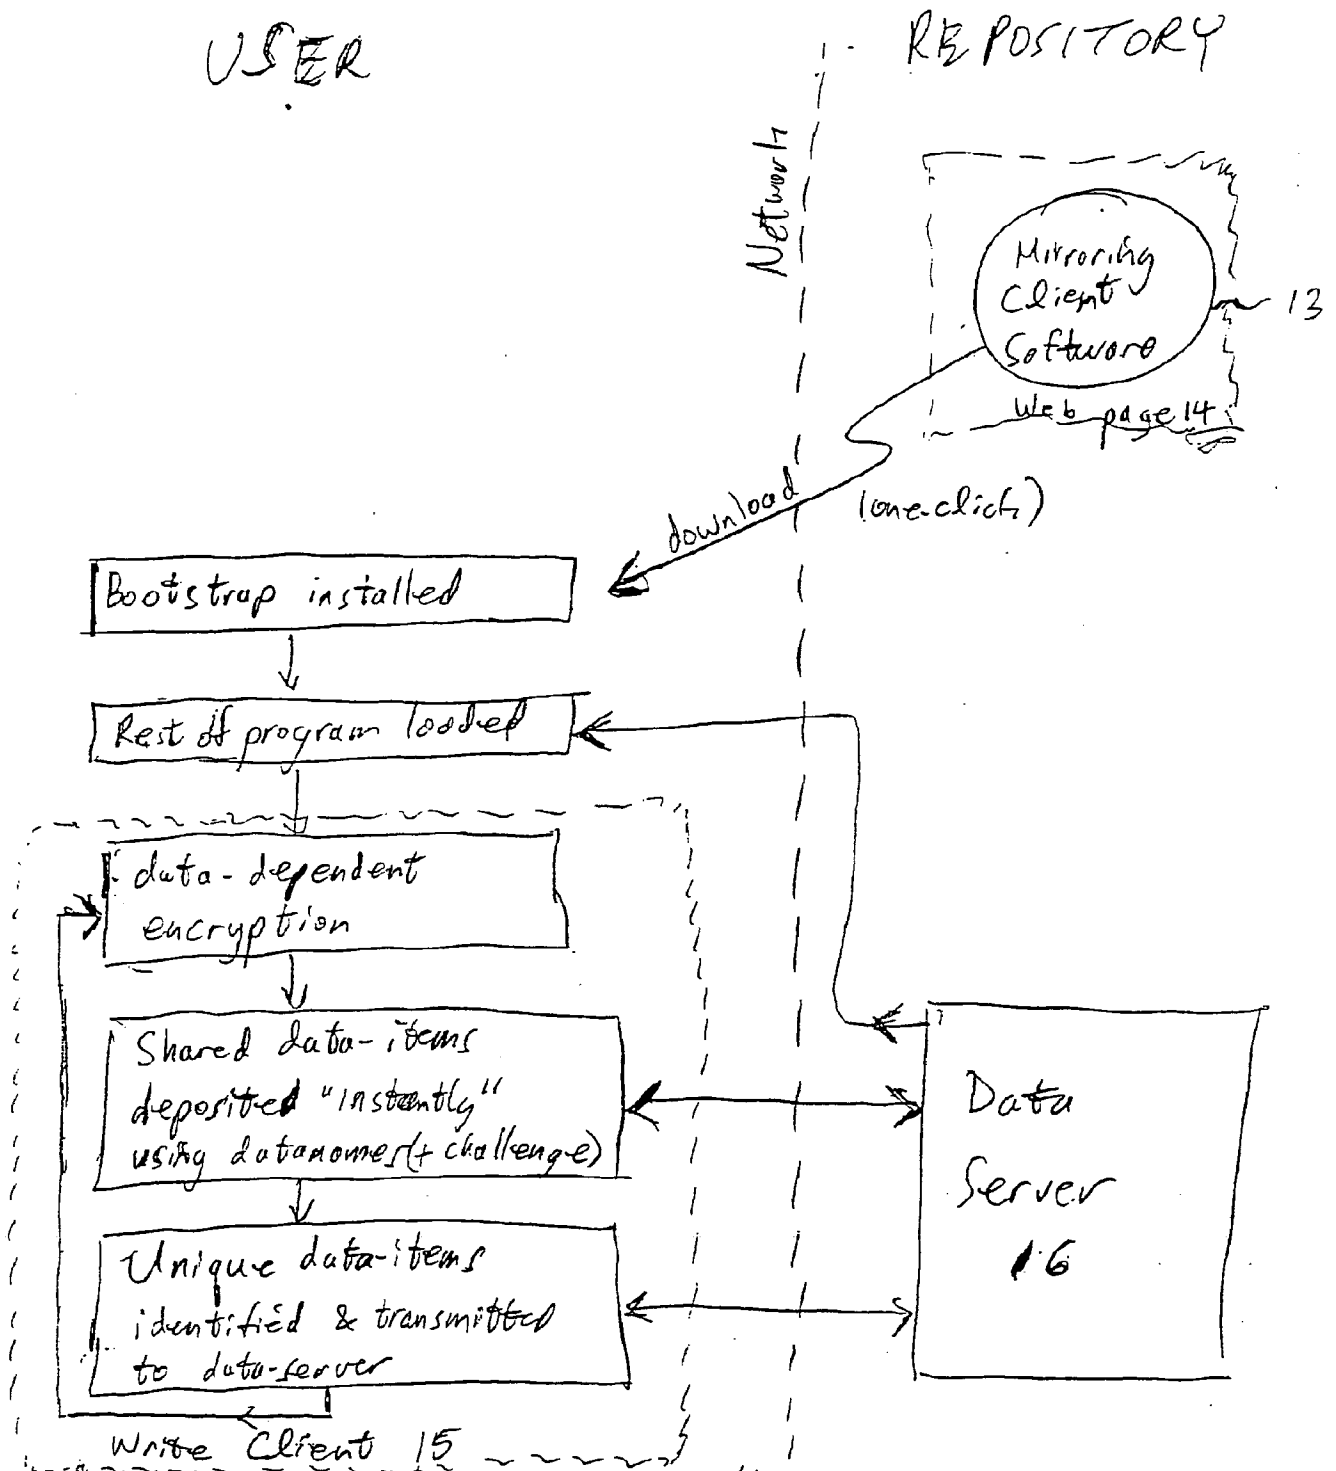 USER
REPOSITORY
Network
Mirroring
Client
Software
13
Web page 14
(one-click)
download
Bootstrap installed
Rest of program loaded
data-dependent
encryption
Shared data-items
deposited "instantly"
using datanames(+ challenge)
Unique data-items
identified & transmitted
to data-server
Write Client 15
Data
Server
16